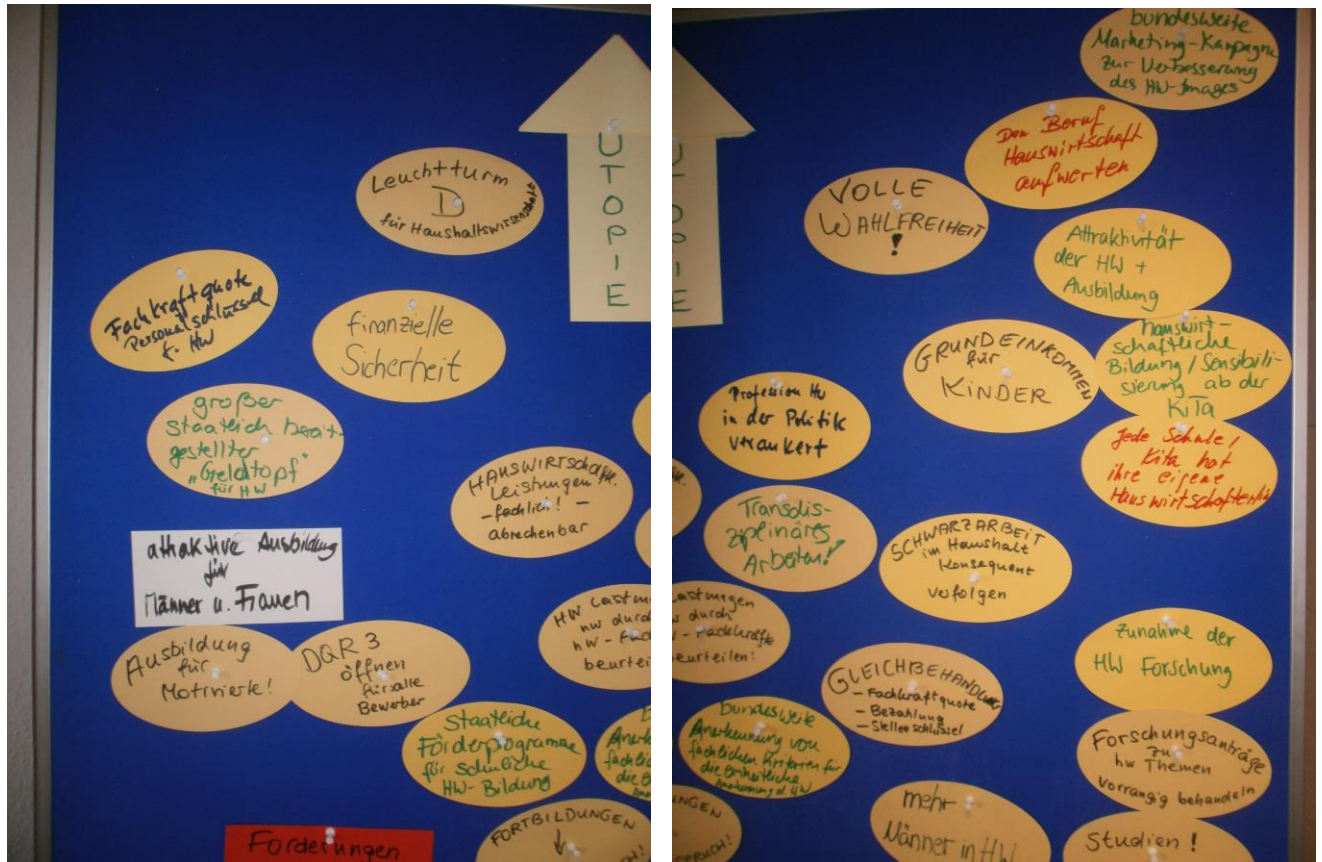 UTOPIE
Leuchtturm
D
für Haushaltswissenschaft
Fachkraftquote
Personalschlüssel
f. HW
finanzielle
Sicherheit
großer
Staatlich bereit-
gestellter
„Geldtopf"
für HW
HAUSWIRTSCHAFTL.
Leistungen
-fachlich! -
abrechenbar
attraktive Ausbildung
für
Männer u. Frauen
Ausbildung
für
Motivierte!
DQR 3
öffnen
für alle
Bewerber
HW Leistun
nur durc
hw - Fac
beurteil
Staatliche
Förderprogramme
für schulische
HW-Bildung
FORTBILDUNGEN
Forderungen
bundesweite
Marketing-Kampagne
zur Verbesserung
des HW-Images
Den Beruf
Hauswirtschaft
aufwerten
VOLLE
WAHLFREIHEIT
!
Attraktivität
der HW +
Ausbildung
hauswirt-
schaftliche
Bildung / Sensibili-
sierung ab der
KiTa
GRUNDEINKOMMEN
für
KINDER
Profession HW
in der Politik
verankert
Jede Schule /
Kita hat
ihre eigene
Hauswirtschafterin
Transdis-
ziplinäres
Arbeiten!
SCHWARZARBEIT
im Haushalt
konsequent
verfolgen
eistungen
durch
- Fachkräfte
eurteilen!
Zunahme der
HW Forschung
GLEICHBEHANDLUNG
- Fachkraftquote
- Bezahlung
- Stellenschlüssel
bundesweite
Anerkennung von
fachlichen Kriterien für
die einheitliche
Anerkennung d. HW
Forschungsanträge
zu
hw Themen
vorrangig behandeln
mehr
Männer in HW
Studien!